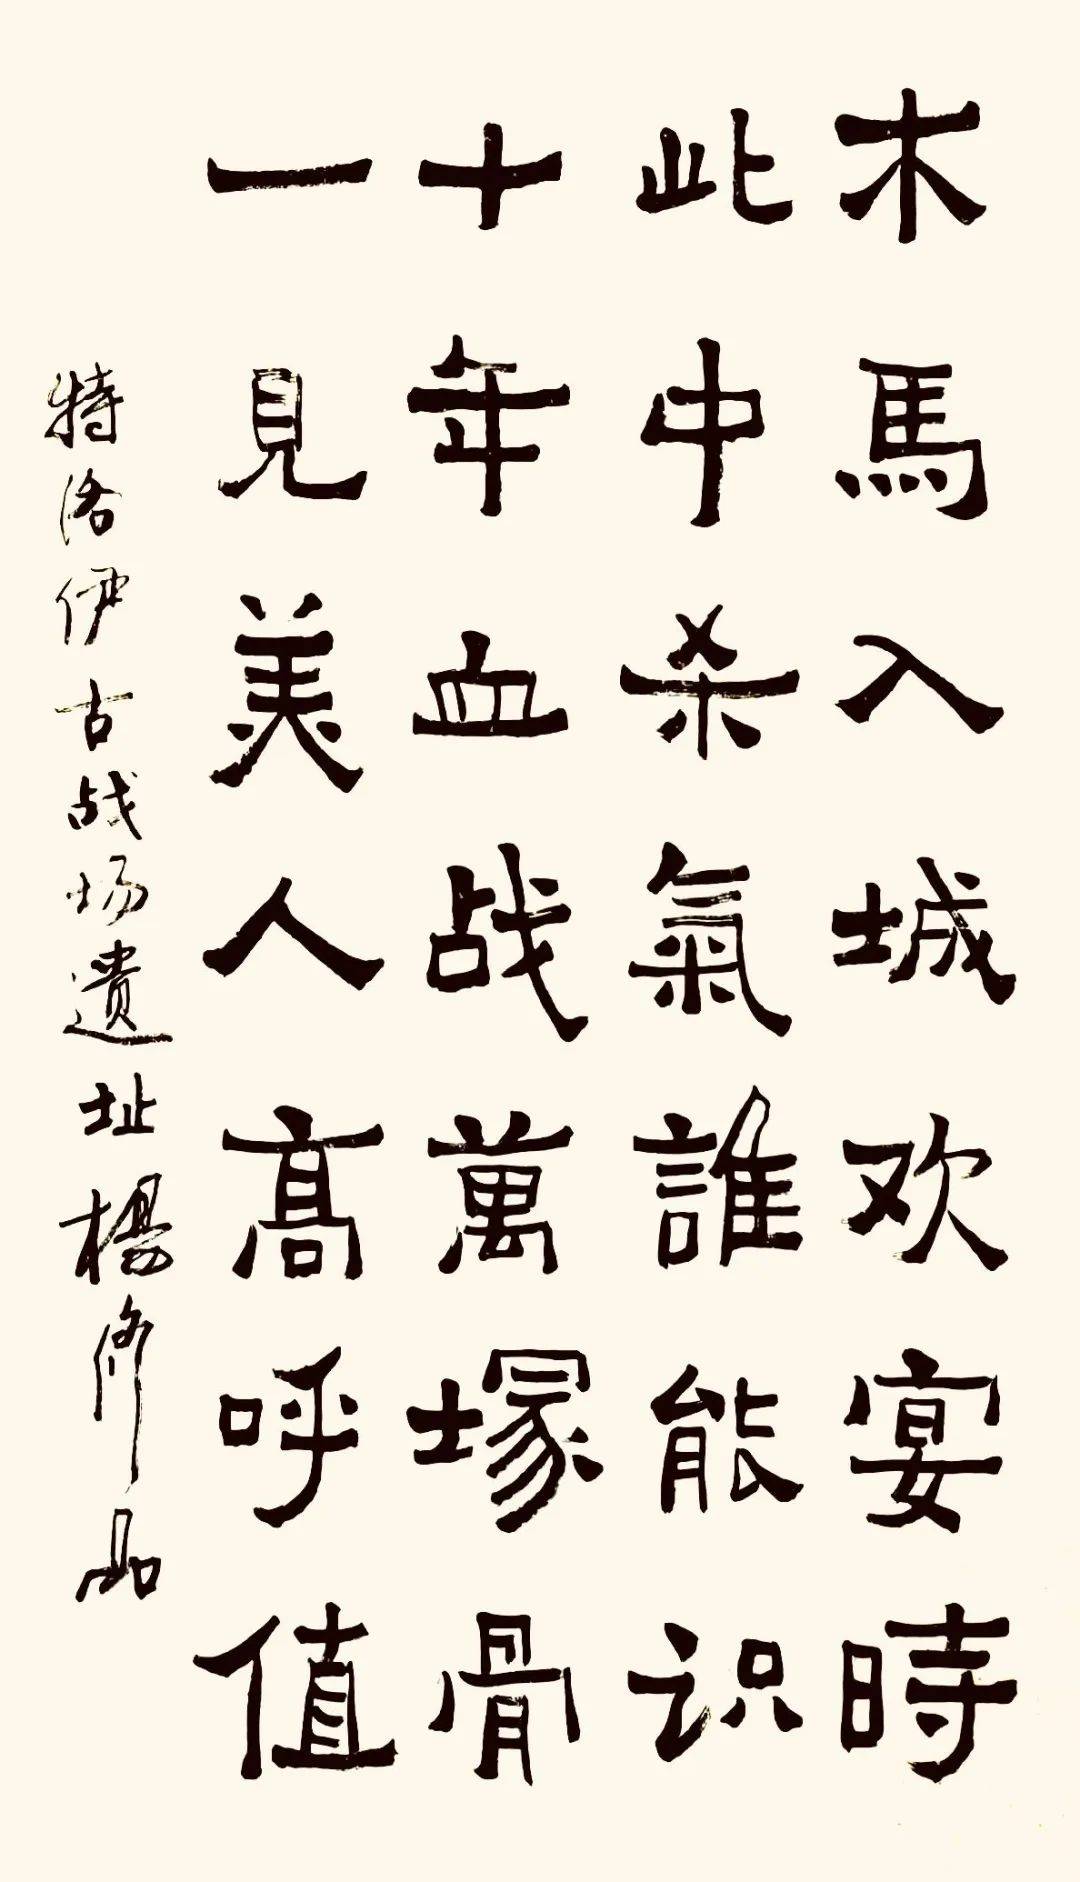 木馬入城欢宴時
此中杀氣誰能识
十年血战萬塚骨
一見美人高呼值
特洛伊古战场遗址楊修品